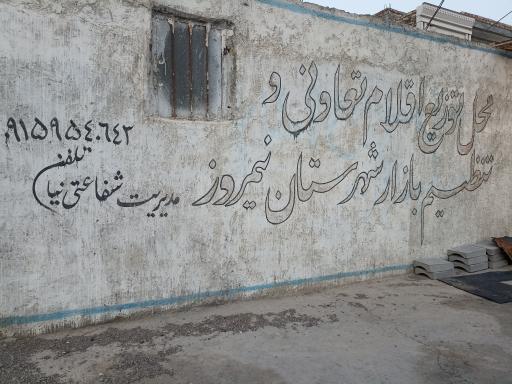 محل توزیع اقلام تعاونی و
تنظیم بازار شهرستان نیمروز
۰۹۱۵۹۵۴۰۶۴۳
تلفن
مدیریت شفاعتی نیا